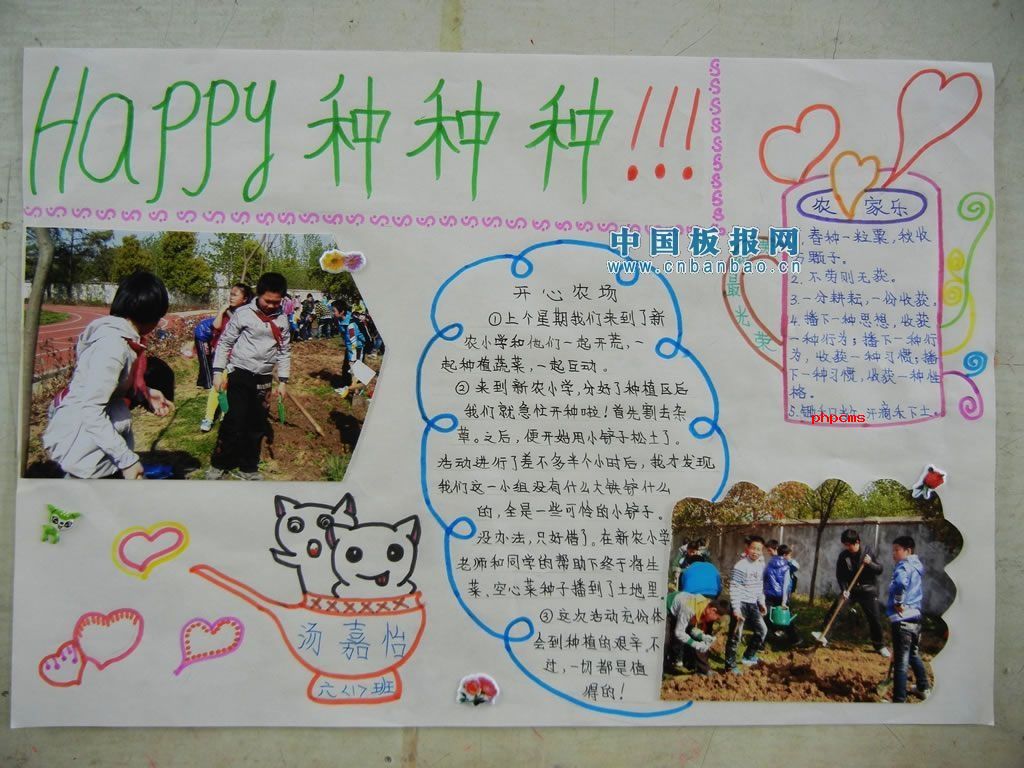 Happy 种种种!!!
中国板报网
www.cnbanbao.cn
农家乐
1.春种一粒粟,秋收
颗子。
2.不劳则无获。
3.一分耕耘,一份收获。
4.播下一种思想,收获
一种行为;播下一种行
为,收获一种习惯;播
下一种习惯,收获一种性
格。
5.锄禾日当午,汗滴禾下土。
phpcms
最光荣
开心农场
①上个星期我们来到了新
农小学和他们一起开荒,一
起种植蔬菜,一起互动。
②来到新农小学,分好了种植区后
我们就急忙开种啦!首先割去杂
草。之后,便开始用小铲子松土了。
活动进行了差不多半个小时后,我才发现
我们这一小组没有什么大铁铲什么
的,全是一些可怜的小铲子。
没办法,只好借了。在新农小学
老师和同学的帮助下终于将生
菜、空心菜种子播到了土地里。
③这次活动充份体
会到种植的艰辛。不
过,一切都是值
得的!
汤嘉怡
六<1>班